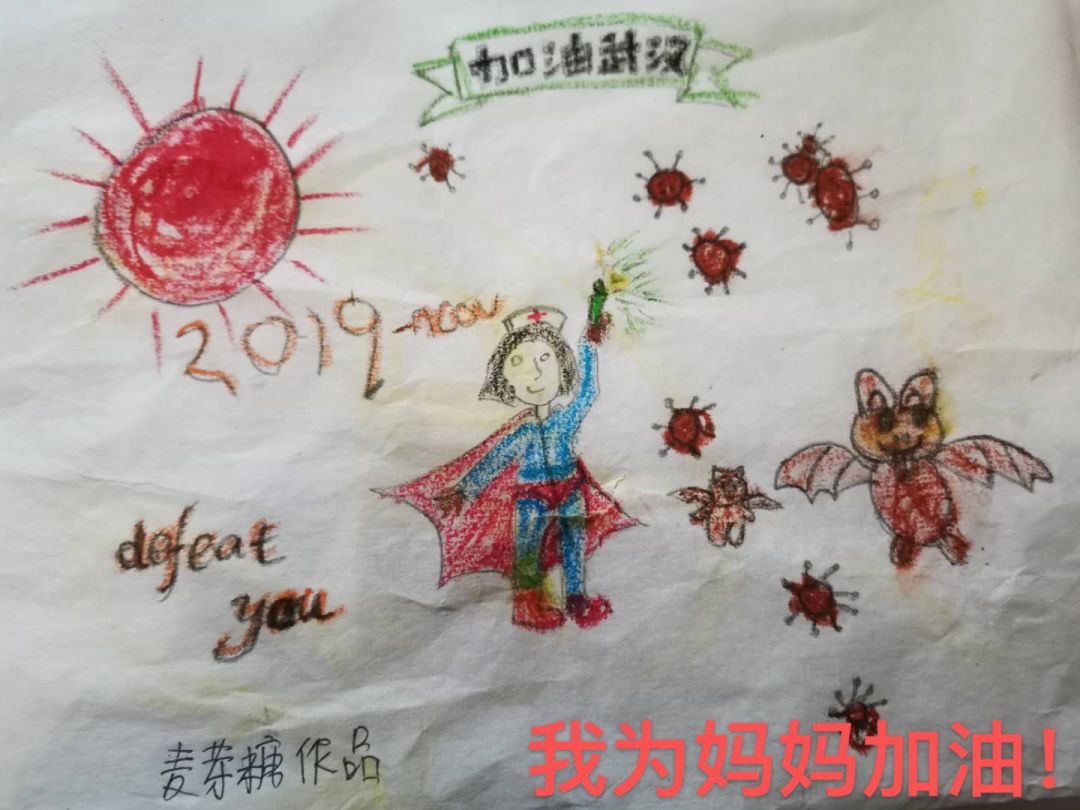 加油武汉
2019-nCoV
defeat
you
麦芽糖作品
我为妈妈加油!